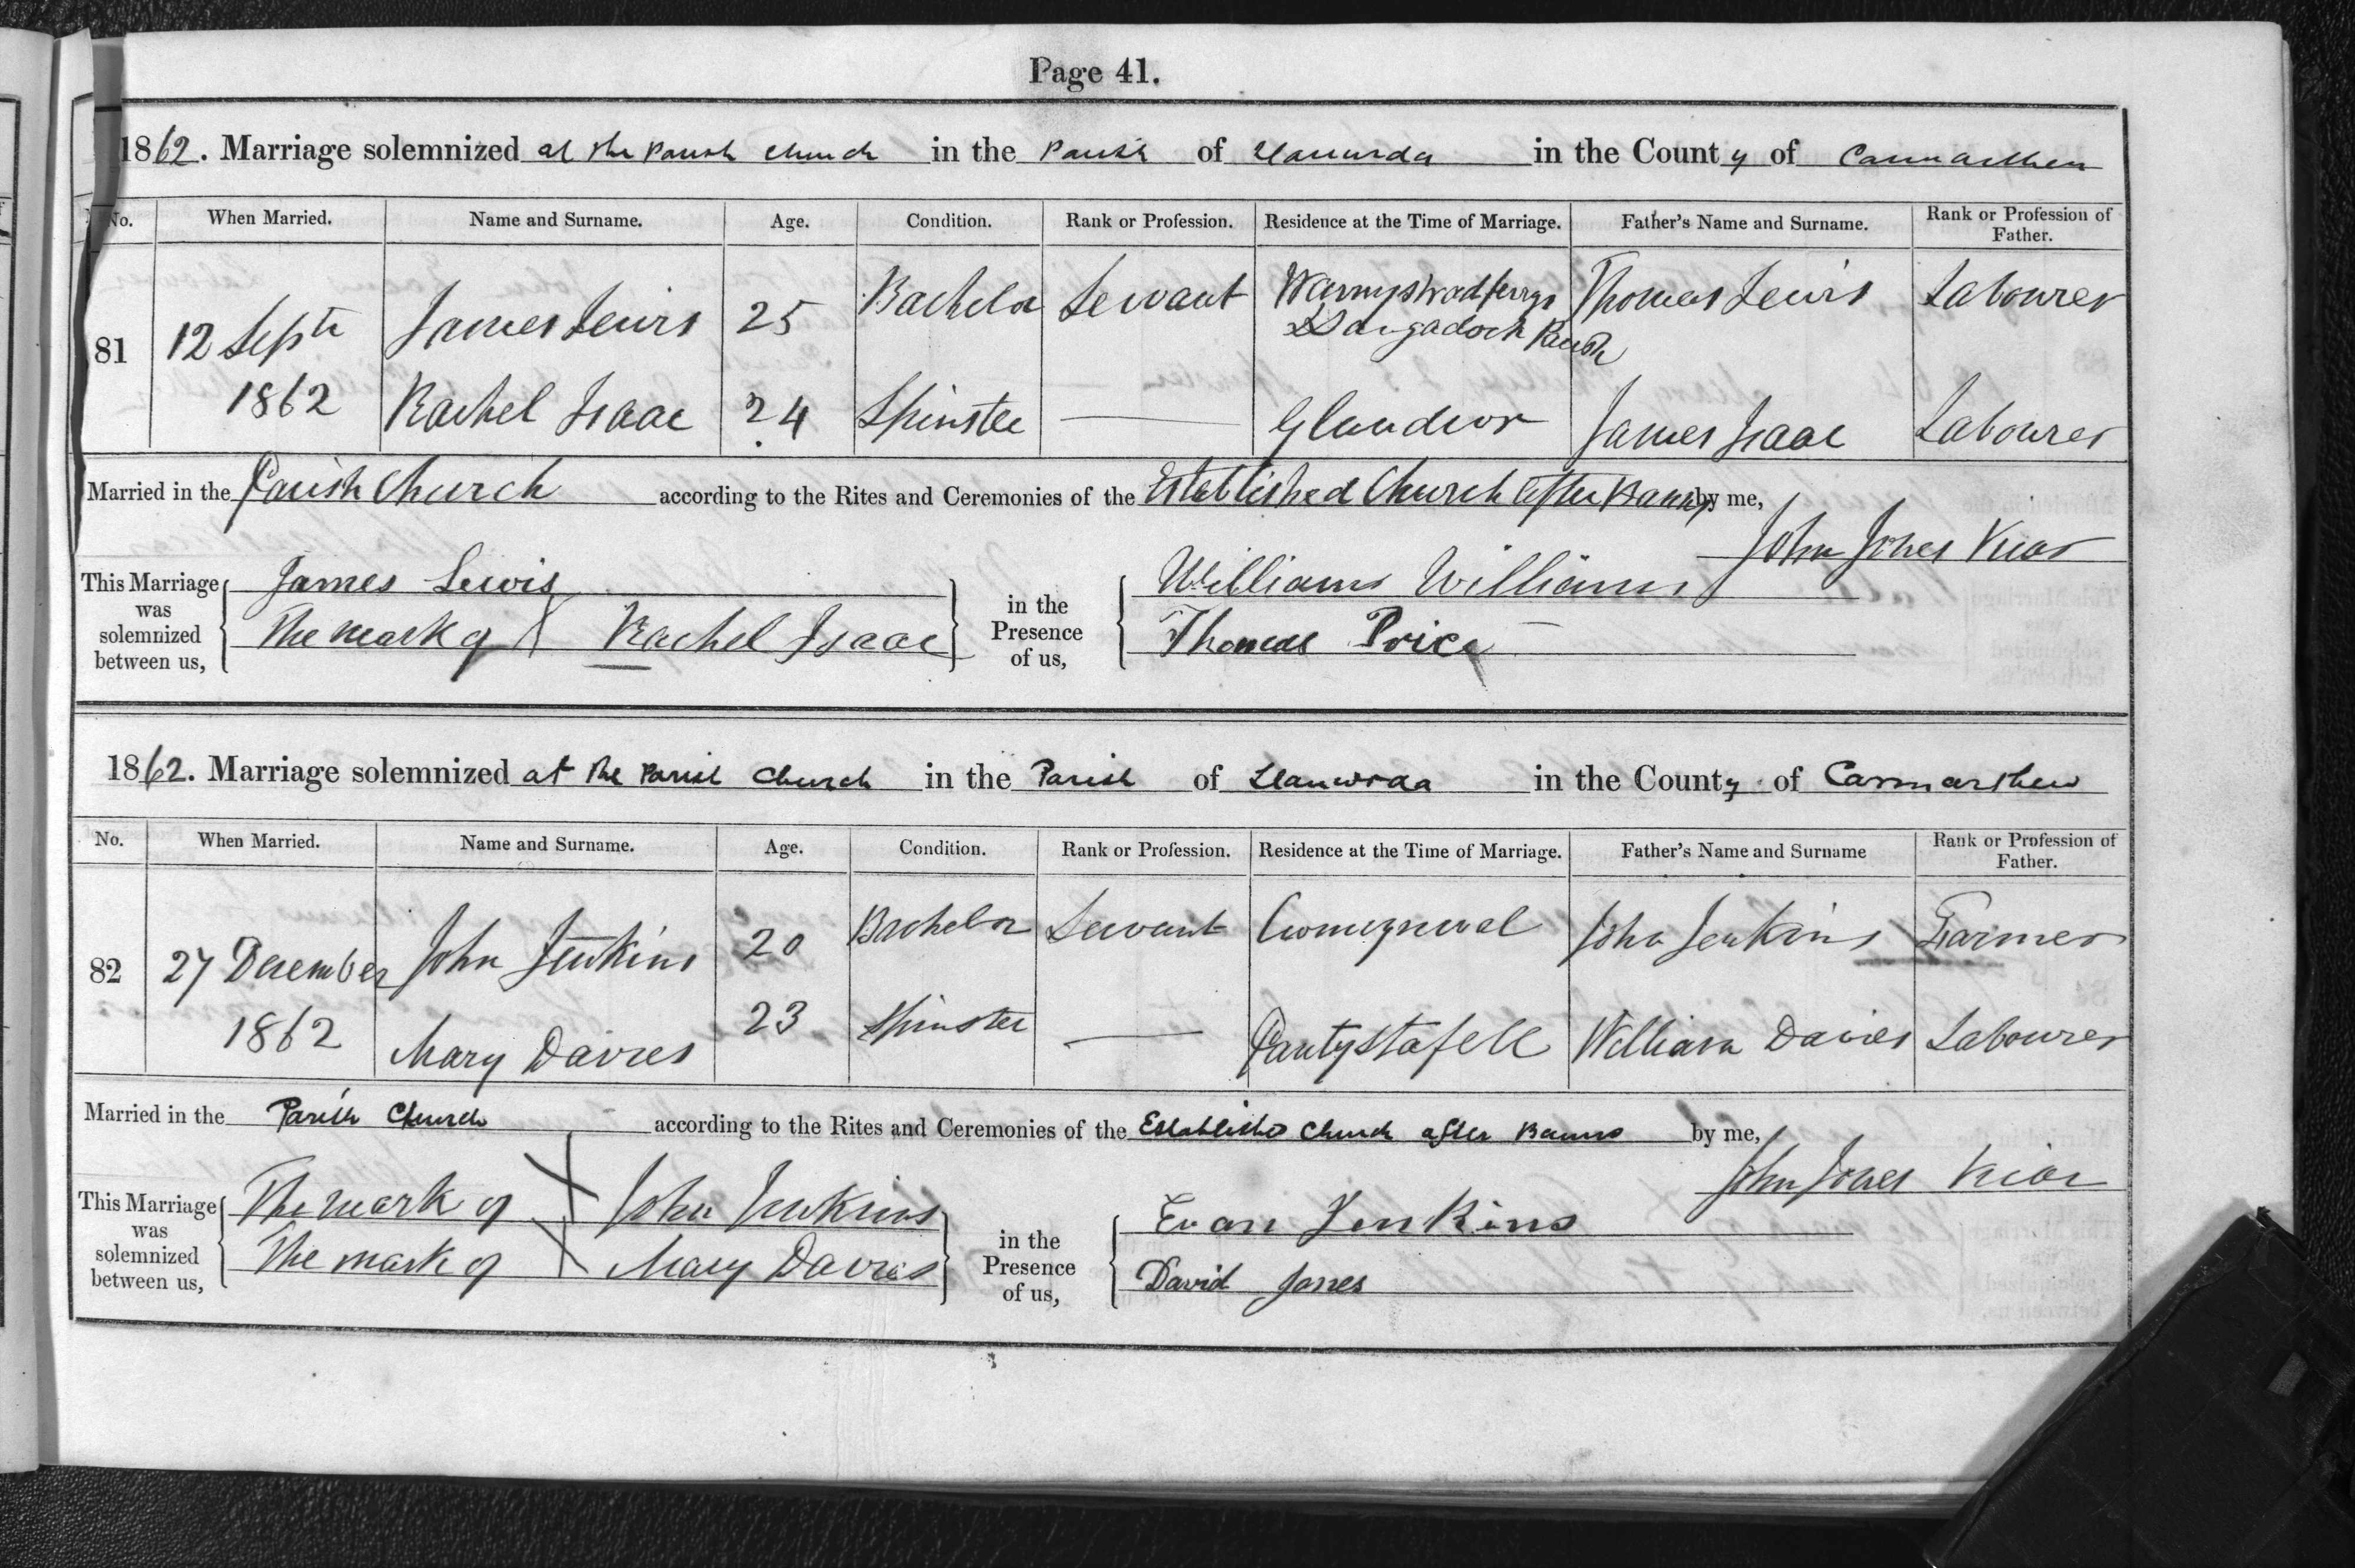 Page 41.
1862. Marriage solemnized at the Parish Church in the Parish of Llanwrda in the County of Carmarthen
No. When Married. Name and Surname. Age. Condition. Rank or Profession. Residence at the Time of Marriage. Father's Name and Surname. Rank or Profession of Father.
81 12 Septr 1862 James Lewis 25 Bachelor Servant Llangadock Parish Thomas Lewis Labourer
Rachel Isaac 24 Spinster — Glandwr James Isaac Labourer
Married in the Parish Church according to the Rites and Ceremonies of the Established Church after Banns by me,
John Jones Vicar
This Marriage was solemnized between us, James Lewis
The mark of X Rachel Isaac
in the Presence of us, Williams Williams
Thomas Price
1862. Marriage solemnized at the Parish Church in the Parish of Llanwrda in the County of Carmarthen
No. When Married. Name and Surname. Age. Condition. Rank or Profession. Residence at the Time of Marriage. Father's Name and Surname Rank or Profession of Father.
82 27 December 1862 John Jenkins 20 Bachelor Servant John Jenkins Farmer
Mary Davies 23 Spinster — Pantystafell William Davies Labourer
Married in the Parish Church according to the Rites and Ceremonies of the Establishd Church after Banns by me,
John Jones Vicar
This Marriage was solemnized between us, The mark of X John Jenkins
The mark of X Mary Davies
in the Presence of us, Evan Jenkins
David Jones